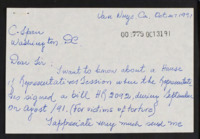 Van Nuys Ca. Oct 27 1991
C-Span
Washington, DC
OCT 31 91
Dear Sir: I want to know about a House
of Representatives Session where the Representatives
has signed a bill HR 2092, during September
or Agost /91. (For victims of torture)
I appreciate very much send me